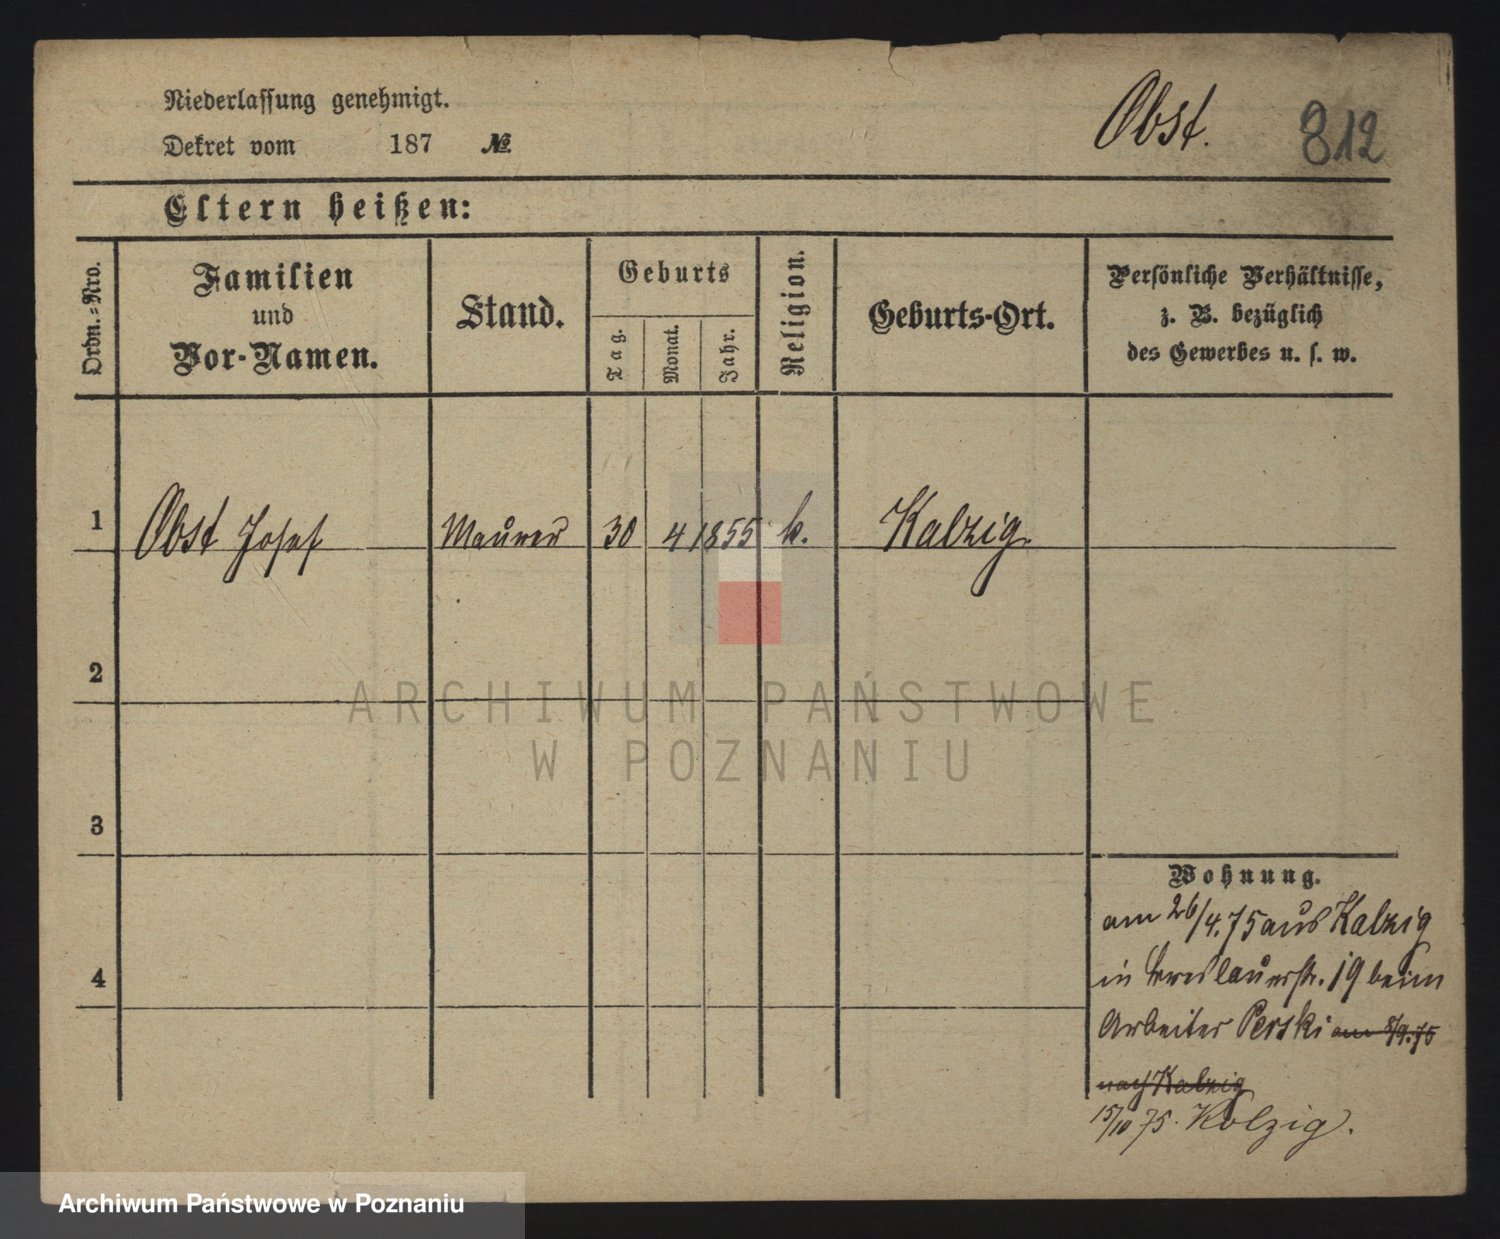 Niederlassung genehmigt.
Obst.
812
Dekret vom 187 №
Eltern heißen:
Ordn.-Nro.
Familien und Vor-Namen.
Stand.
Geburts
Tag.
Monat.
Jahr.
Religion.
Geburts-Ort.
Persönliche Verhältnisse,
z. B. bezüglich
des Gewerbes u. s. w.
1 Obst Josef Maurer 30 4 1855 k. Kalzig.
2
3
4
Wohnung.
am 26/4.75 aus Kalzig
in Breslauerstr. 19 beim
Arbeiter Perski am 8/9.75
nach Kalzig
15/10 75. Kolzig.
ARCHIWUM PAŃSTWOWE
W POZNANIU
Archiwum Państwowe w Poznaniu